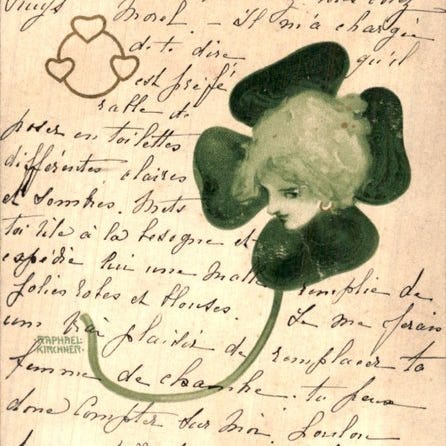 Morel - Il m'a chargée
de te dire qu'il
est préfé
rable de
poser en toilettes
différentes claires
et sombres. Mets
toi vite à la besogne et
expédie lui une malle remplie de
jolies robes et blouses. Je me ferais
un vrai plaisir de remplacer ta
RAPHAEL
KIRCHNER.
femme de chambre. tu peux
donc compter sur moi. Loulou